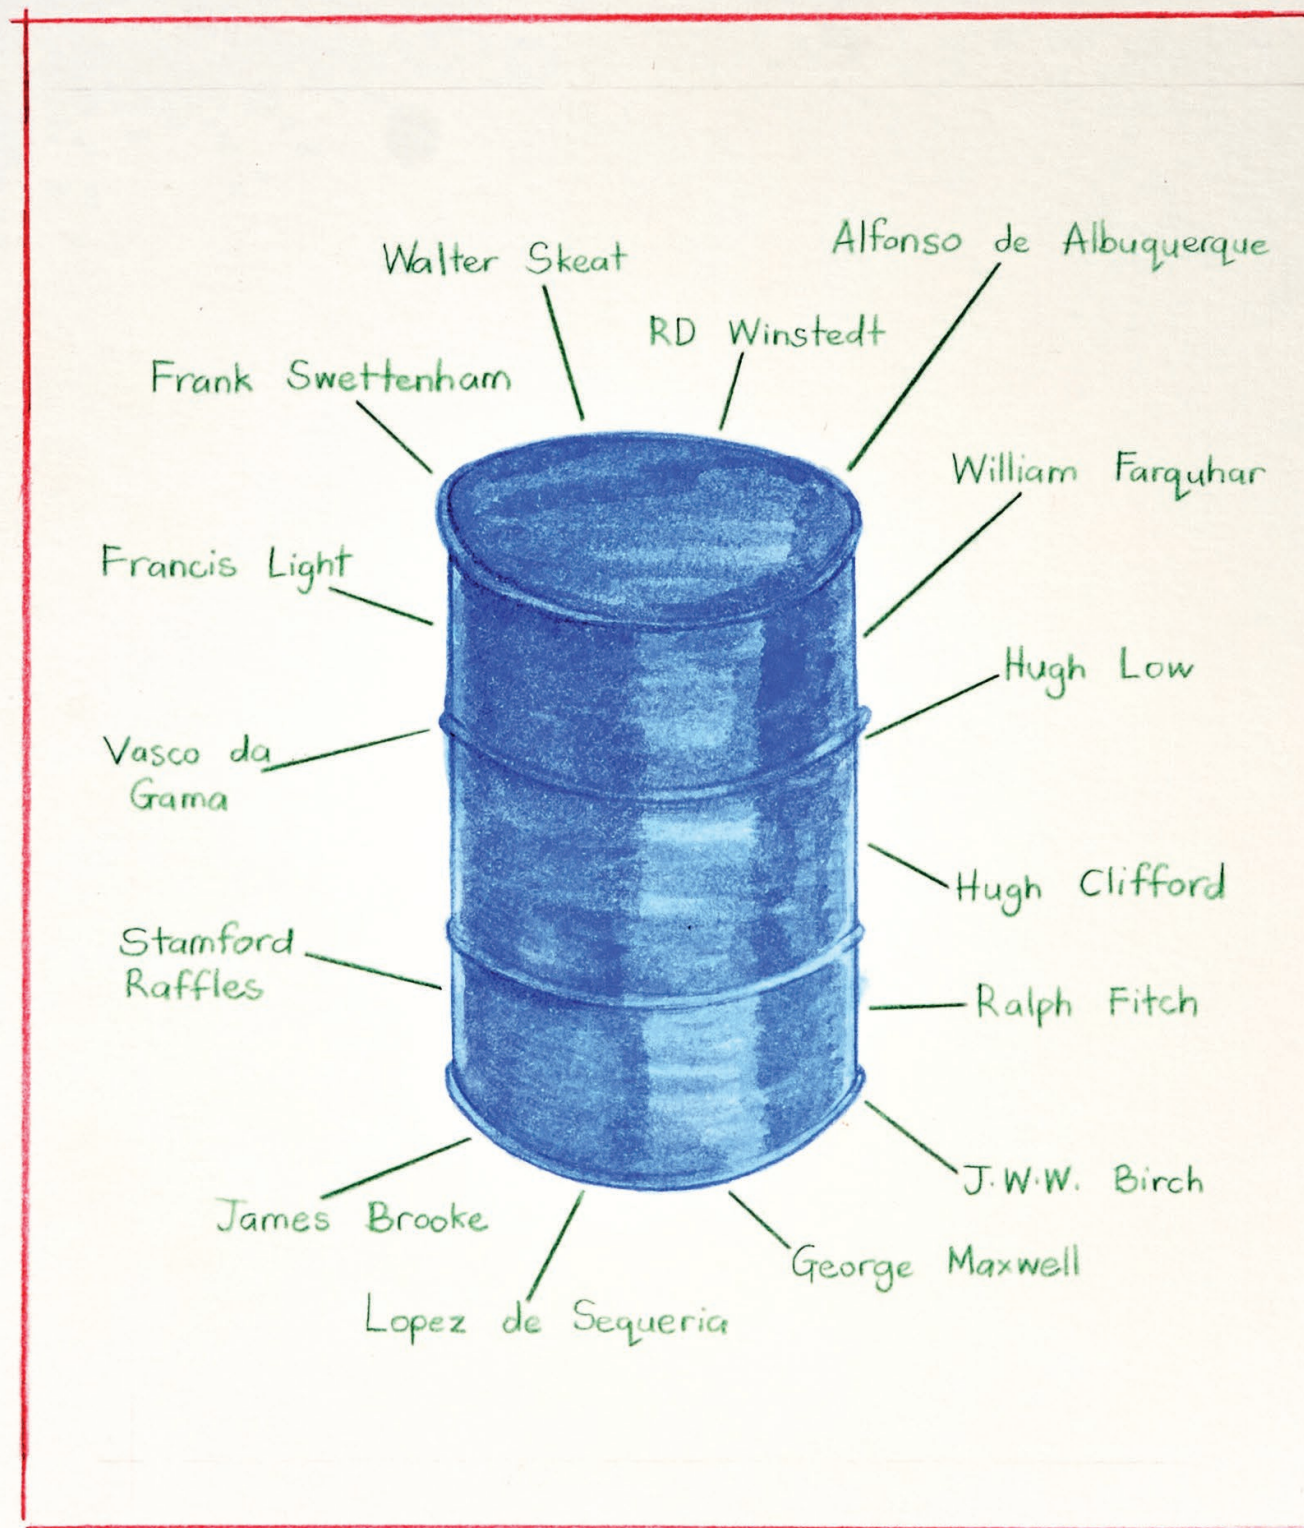 Alfonso de Albuquerque
Walter Skeat
RD Winstedt
Frank Swettenham
William Farquhar
Francis Light
Hugh Low
Vasco da
Gama
Hugh Clifford
Stamford
Raffles
Ralph Fitch
J.W.W. Birch
James Brooke
George Maxwell
Lopez de Sequeria